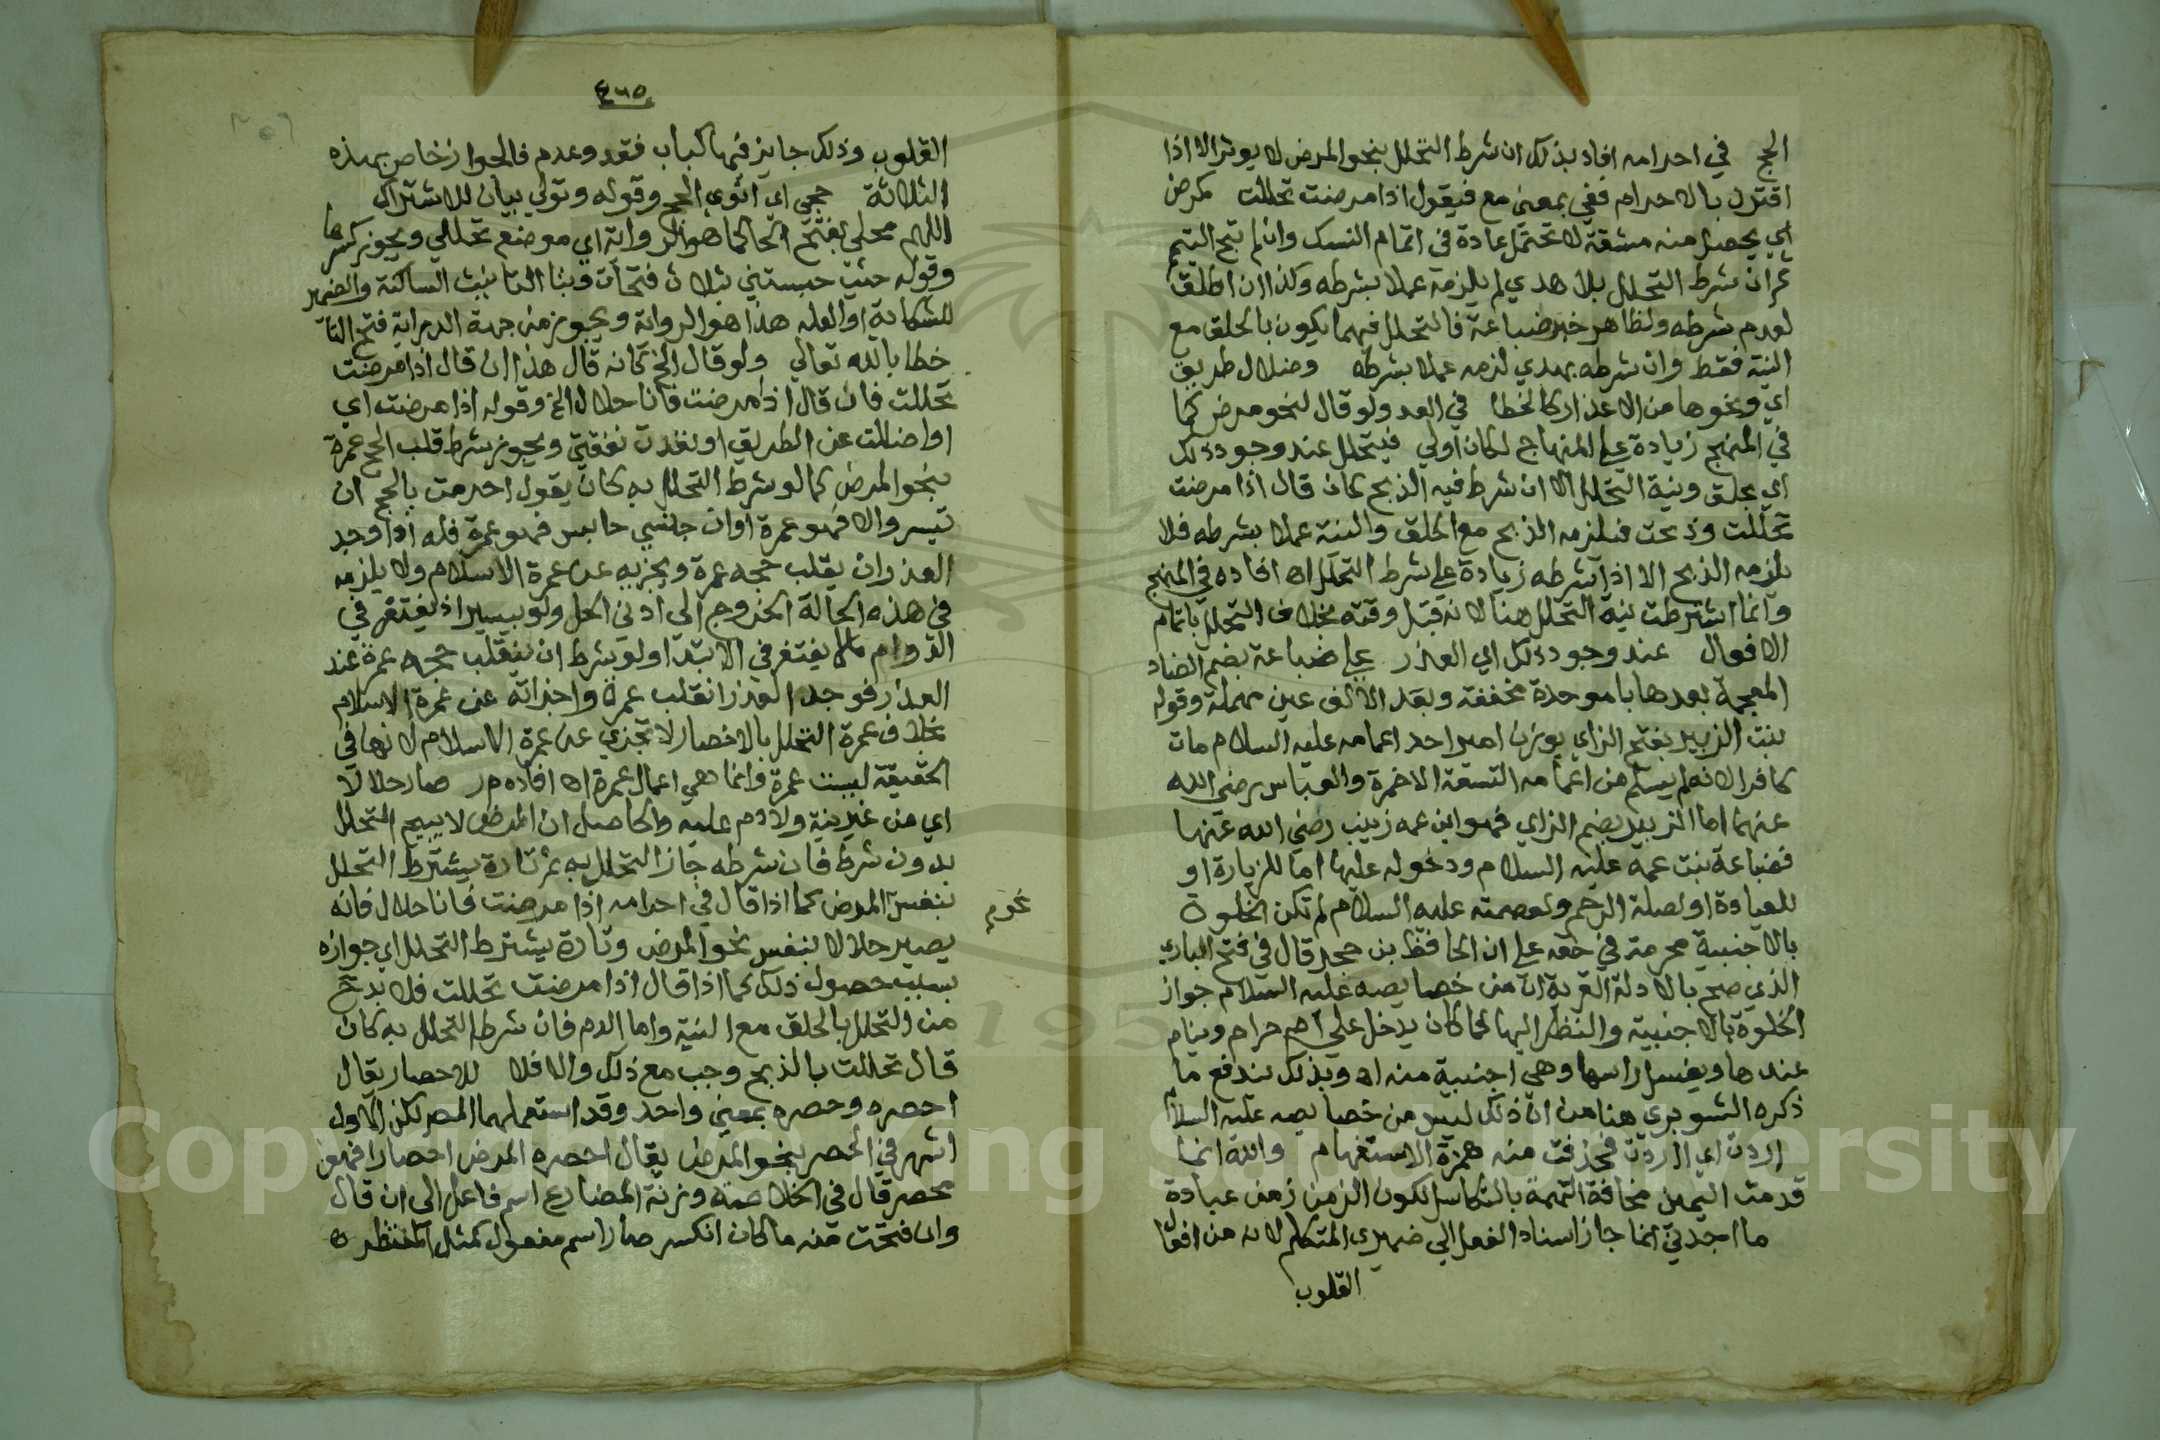 الحج في احرامه افاد بذلك ان شرط التحلل بنحو المرض لا يوثر الا اذا
اقترن بالاحرام ففي بمعني مع فيقول اذا مرضت تحللت كمرض
اي يحصل منه مشقة لا تحتمل عادة في اتمام النسك وان لم تبح التيمم
ثم ان شرط التحلل بلا هدي لم يلزمه عملا بشرطه وكذا ان اطلق
لعدم شرطه ولظاهر خبر ضباعة فالتحلل فيهما يكون بالحلق مع
النية فقط وان شرطه بهدي لزمه عملا بشرطه وضلال طريق
اي ونحوها من الاعذار كالخطا في العدد ولو قال لنحو مرض كما
في المنهج زيادة علي المنهاج لكان اولي فيتحلل عند وجود ذلك
اي بحلق ونية التحلل الا ان شرط فيه الذبح كان قال اذا مرضت
تحللت وذبحت فيلزمه الذبح مع الحلق والنية عملا بشرطه فلا
يلزمه الذبح الا اذا شرطه زيادة علي شرط التحلل اه افاده في المنهج
وانما اشترطت نية التحلل هنا لانه قبل وقته بخلاف التحلل باتمام
الافعال عند وجود ذلك اي العذر علي ضباعة بضم الضاد
المعجمة بعدها با موحدة مخففة وبعد الالف عين مهملة وقوله
بنت الزبير بفتح الزاي بوزن امير احد اعمامه عليه السلام مات
كافرا لانه لم يسلم من اعمامه التسعة الا حمزة والعباس رضي الله
عنهما اما الزبير بضم الزاي فهو ابن عمه زينب رضي الله عنها
فضباعة بنت عمه عليه السلام ودخوله عليها اما للزيارة او
للعيادة او لصلة الرحم ولعصمته عليه السلام لم تكن الخلوة
بالاجنبية محرمة في حقه علي ان الحافظ بن حجر قال في فتح الباري
الذي صح بالادلة القوية ان من خصايصه عليه السلام جواز
الخلوة بالاجنبية والنظر اليها كما كان يدخل علي ام حرام وينام
عندها ويغسل راسها وهي اجنبية منه اه وبذلك يندفع ما
ذكره الشوبري هنا من ان ذلك ليس من خصايصه عليه السلام
اردت اي ااردت فحذفت منه همزة الاستفهام والله انما
قدمت اليمين مخافة التهمة بالتكاسل لكون الزمن زمن عبادة
ما اجدني انما جاز اسناد الفعل الي ضميري المتكلم لانه من افعال
القلوب
٤٦٥
القلوب وذلك جايز فيها كباب فقد وعدم فالجواز خاص بهذه
الثلاثة حجي اي انوي الحج وقوله وتولي بيان للاشتراك
اللهم محلي بفتح الحا كما هو الرواية اي موضع تحللي ويجوز كسرها
وقوله حيث حبستني بثلاث فتحات وبتا التانيث الساكنة والضمير
للشكاية او العلة هذا هو الرواية ويجوز من جهة الدراية فتح التا
خطابا لله تعالي ولو قال الخ كانه قال هذا ان قال اذا مرضت
تحللت فان قال اذا مرضت فانا حلال الخ وقوله اذا مرضت اي
او اضللت عن الطريق او نفدت نفقتي ويجوز شرط قلب الحج عمرة
بنحو المرض كما لو شرط التحلل به كان يقول احرمت بالحج ان
تيسر والا فهو عمرة او ان حبسني حابس فهو عمرة فله اذا وجد
العذر ان يقلب حجه عمرة ويجزيه عن عمرة الاسلام ولا يلزمه
في هذه الحالة الخروج الي ادني الحل ولو بيسير اذ يغتفر في
الدوام ما لا يغتفر في الابتدا ولو شرط ان ينقلب حجه عمرة عند
العذر فوجد العذر انقلب عمرة واجزاته عن عمرة الاسلام
بخلاف عمرة التحلل بالاحصار لا تجزي عن عمرة الاسلام لانها في
الحقيقة ليست عمرة وانما هي اعمال عمرة اه افاده م ر صار حلالا
اي من غير نية ولا دم عليه والحاصل ان المرض لا يبيح التحلل
بدون شرط فان شرطه جاز التحلل به ثم تارة يشترط التحلل
بنفس المرض كما اذا قال في احرامه اذا مرضت فانا حلال فانه
يصير حلالا بنفس نحو المرض وتارة يشترط التحلل اي جوازه
بسبب حصول ذلك كما اذا قال اذا مرضت تحللت فلا بد ح
من التحلل بالحلق مع النية واما الدم فان شرط التحلل به كان
قال تحللت بالذبح وجب مع ذلك والا فلا للاحصار يقال
احصره وحصره بمعني واحد وقد استعملهما المص لكن الاول
اشهر في الحصر بنحو المرض يقال احصره المرض احصارا فهو
محصر قال في الخلاصة وزنة المضارع اسم فاعل الي ان قال
وان فتحت منه ما كان انكسر صار اسم مفعول كمثل المنتظر ه